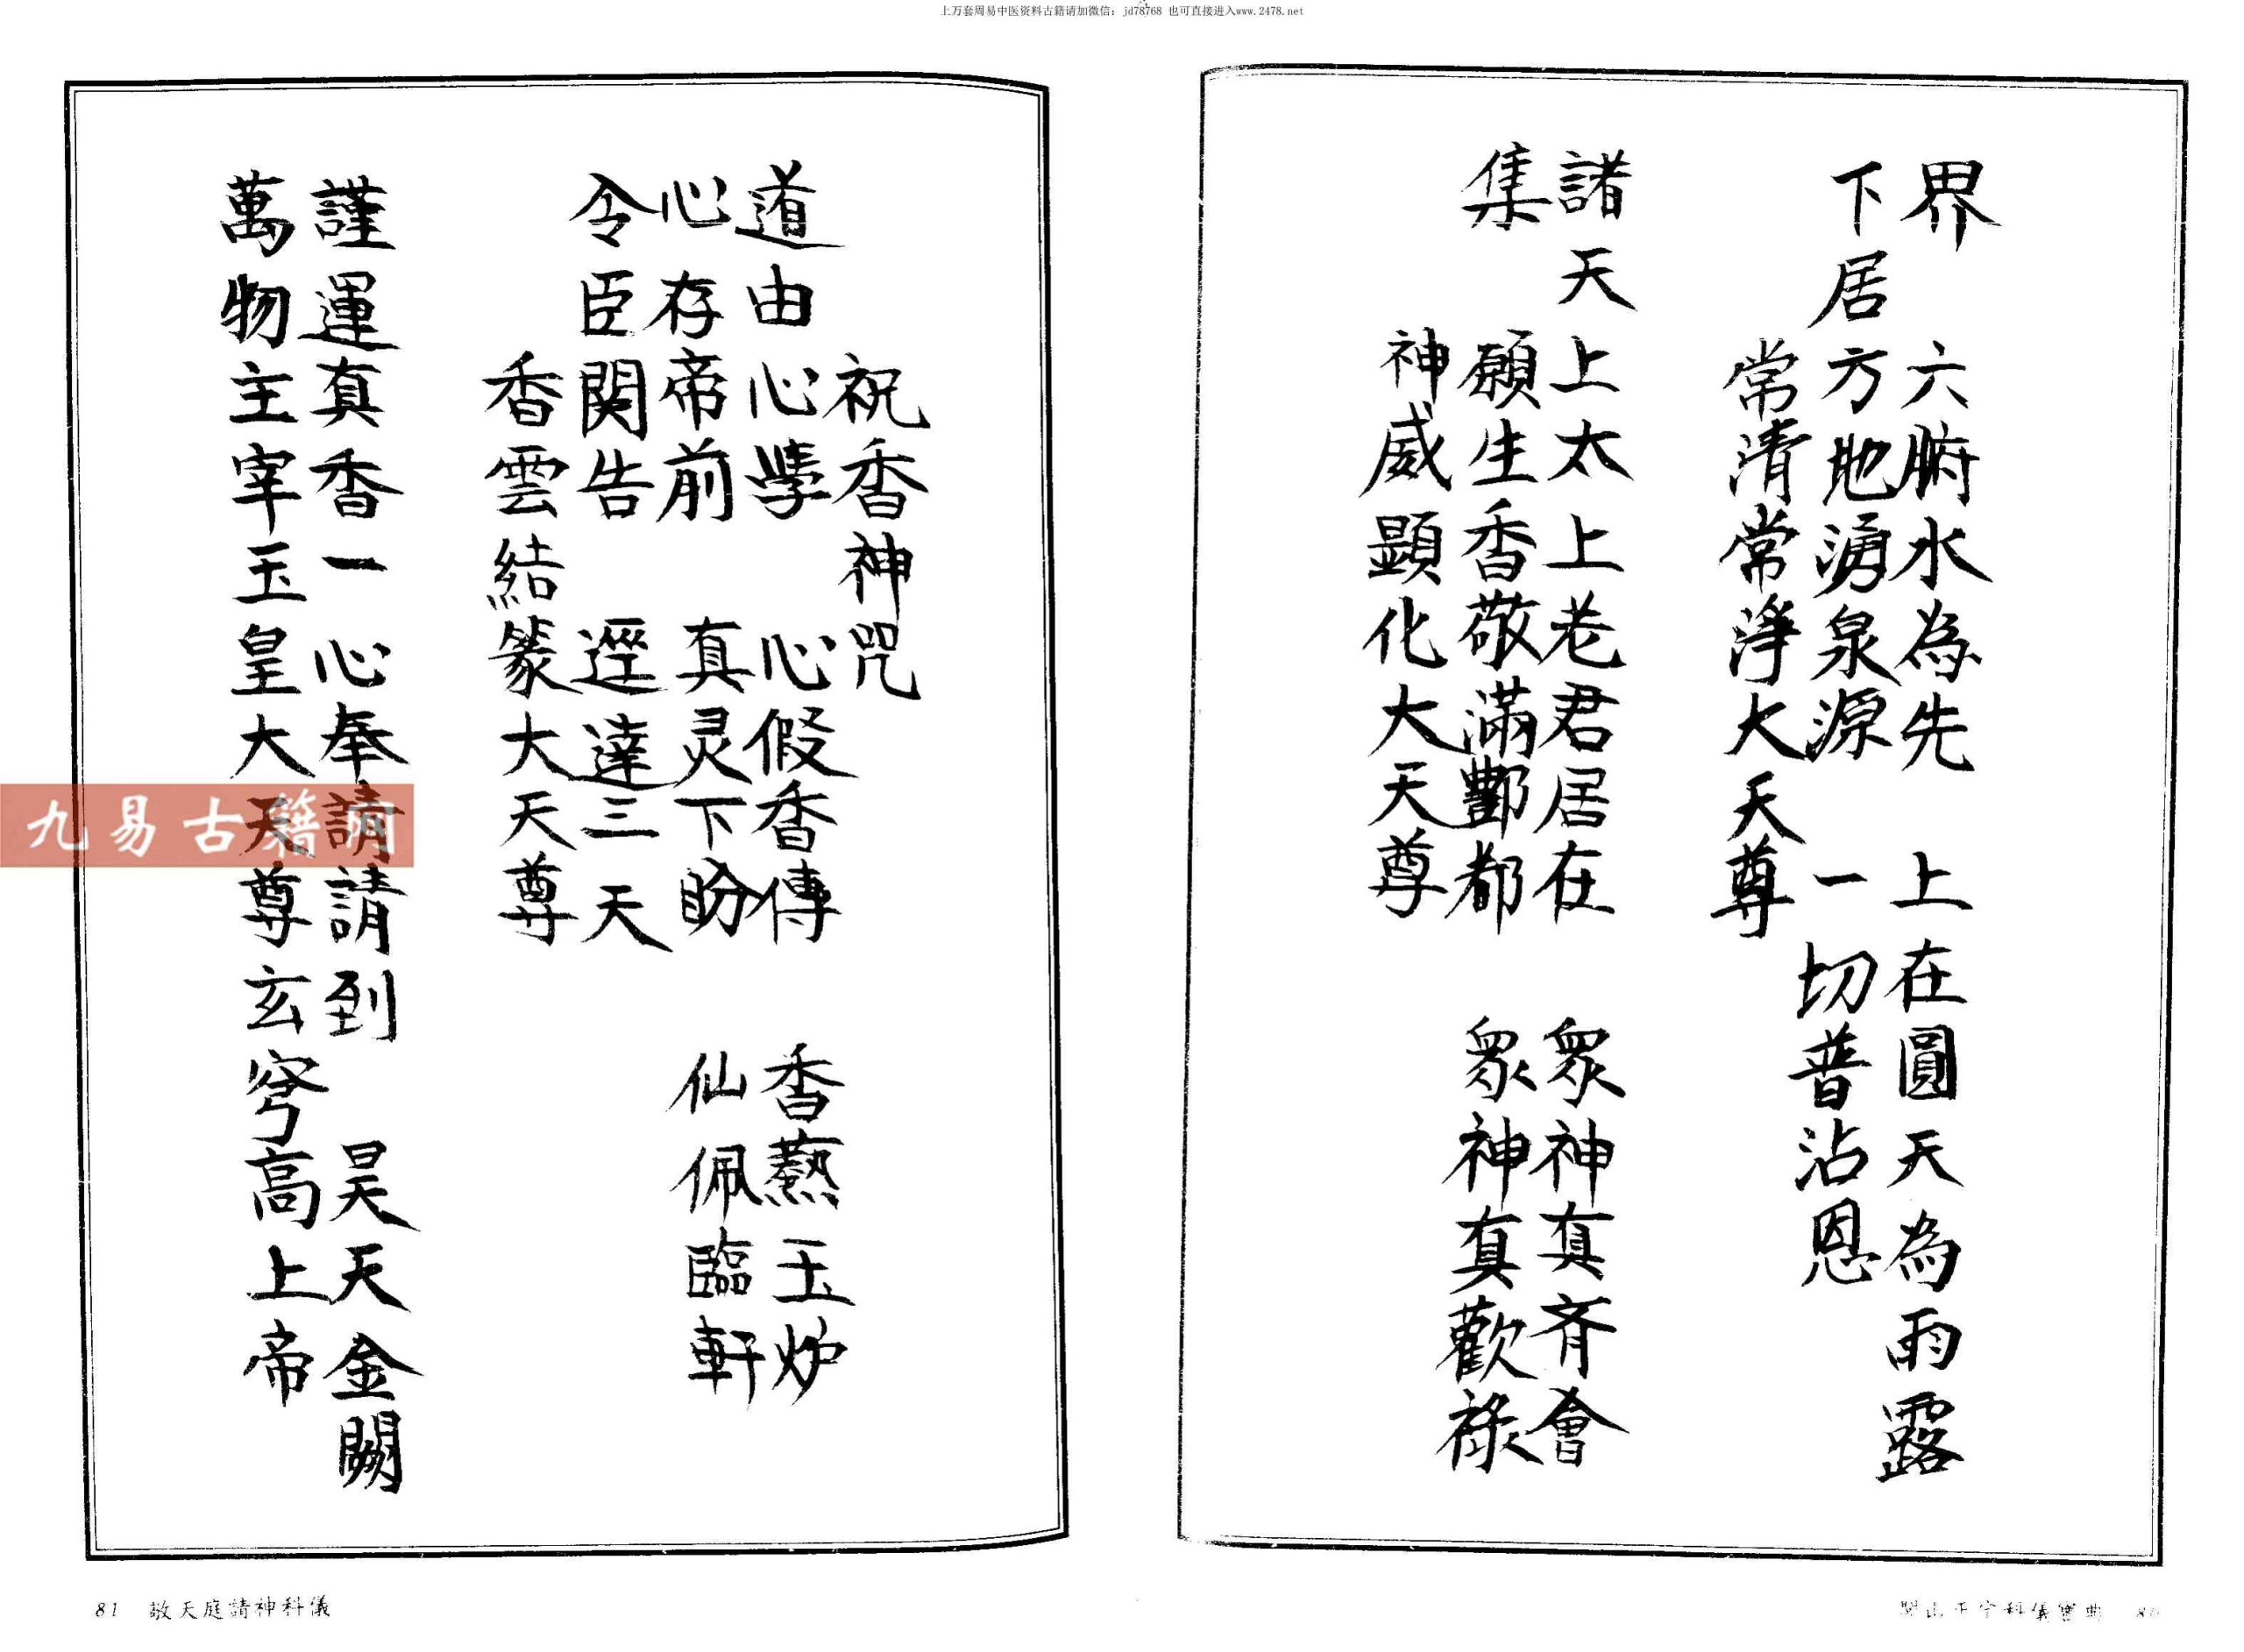 上万套周易中医资料古籍请加微信：jd78768 也可直接进入www.2478.net
界 六腑水為先 上在圓天為雨露
下居方地湧泉源 一切普沾恩
常清常淨大天尊
諸天上太上老君居在 眾神真齊會
集 願生香敬滿酆都 眾神真歡祿
神威顯化大天尊
閭山正宗科儀寶典 80
祝香神咒
道由心學 心假香傳 香爇玉炉
心存帝前 真灵下盼 仙佩臨軒
令臣関告 逕達三天
香雲結篆大天尊
謹運真香一心奉請請到 昊天金闕
萬物主宰玉皇大天尊玄穹高上帝
81 敬天庭請神科儀
九易古籍网